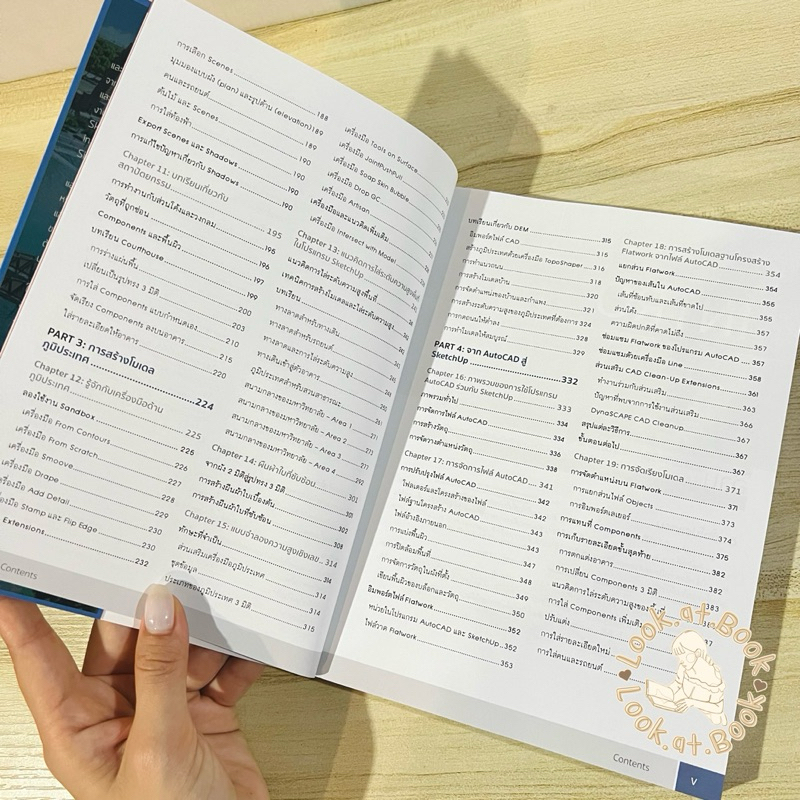 การเลือก Scenes 188
มุมมองแบบผัง (plan) และรูปด้าน (elevation) 189
คนและรถยนต์ 189
ต้นไม้ และ Scenes 190
การใส่ท้องฟ้า 190
Export Scenes และ Shadows 190
การแก้ไขปัญหาเกี่ยวกับ Shadows 190
Chapter 11: บทเรียนเกี่ยวกับ
สถาปัตยกรรม 195
การทำงานกับส่วนโค้งและวงกลม 195
วัตถุที่ถูกซ่อน 196
Components และพื้นผิว 197
บทเรียน Courthouse 199
การร่างแผ่นพื้น 200
เปลี่ยนเป็นรูปทรง 3 มิติ 203
การใส่ Components แบบกำหนดเอง 210
จัดเรียง Components ลงบนอาคาร 215
ใส่รายละเอียดให้อาคาร 220
PART 3: การสร้างโมเดล
ภูมิประเทศ 224
Chapter 12: รู้จักกับเครื่องมือด้าน
ภูมิประเทศ 225
ลองใช้งาน Sandbox 226
เครื่องมือ From Contours 226
เครื่องมือ From Scratch 227
เครื่องมือ Smoove 228
เครื่องมือ Drape 229
เครื่องมือ Add Detail 230
เครื่องมือ Stamp และ Flip Edge 230
Extensions 232
เครื่องมือ Tools on Surface
เครื่องมือ JointPushPull
เครื่องมือ Soap Skin Bubble
เครื่องมือ Drop GC
เครื่องมือ Artisan
เครื่องมือและแนวคิดเพิ่มเติม
เครื่องมือ Intersect with Model
Chapter 13: แนวคิดการไล่ระดับความสูงพื้นที่
ในโปรแกรม SketchUp
แนวคิดการไล่ระดับความสูงพื้นที่
เทคนิคการสร้างโมเดลและไล่ระดับความสูง
บทเรียน
ทางลาดสำหรับทางเดิน
ทางลาดและการไล่ระดับความสูง
ทางเดินเข้าสู่ตัวอาคาร
ภูมิประเทศสำหรับสวนสาธารณะ
สนามกลางของมหาวิทยาลัย - Area 1
สนามกลางของมหาวิทยาลัย - Area 2
สนามกลางของมหาวิทยาลัย - Area 3
สนามกลางของมหาวิทยาลัย - Area 4
Chapter 14: ผืนผ้าใบที่ซับซ้อน
จากผัง 2 มิติสู่รูปทรง 3 มิติ 301
การสร้างผืนผ้าใบเบื้องต้น 302
การสร้างผืนผ้าใบที่ซับซ้อน 308
Chapter 15: แบบจำลองความสูงเชิงเลข 314
ทักษะที่จำเป็น 314
ส่วนเสริมเครื่องมือภูมิประเทศ 314
ชุดข้อมูล 314
ประเภทของภูมิประเทศ 3 มิติ 315
Contents
บทเรียนเกี่ยวกับ DEM 315
อิมพอร์ตไฟล์ CAD 315
สร้างภูมิประเทศด้วยเครื่องมือ TopoShaper 316
การทำแนวถนน 318
การสร้างโมเดลบ้าน 320
การจัดตำแหน่งของบ้านและกำแพง 321
การสร้างระดับความสูงของภูมิประเทศที่ต้องการ 324
การกดถนนให้ต่ำลง 328
การทำโมเดลให้สมบูรณ์ 329
PART 4: จาก AutoCAD สู่
SketchUp 332
Chapter 16: ภาพรวมของการใช้โปรแกรม
AutoCAD ร่วมกับ SketchUp 333
ภาพรวมทั่วไป 334
การจัดการไฟล์ AutoCAD 334
การสร้างวัตถุ 336
การจัดวางตำแหน่งวัตถุ 338
Chapter 17: การจัดการไฟล์ AutoCAD 341
การปรับปรุงไฟล์ AutoCAD 342
โฟลเดอร์และโครงสร้างของไฟล์ 342
ไฟล์ฐานโครงสร้าง AutoCAD 343
ไฟล์อ้างอิงภายนอก 343
การแบ่งพื้นผิว 343
การปิดล้อมพื้นที่ 347
การจัดการวัตถุในผังที่ตั้ง 348
เขียนพื้นผิวของบล็อกและวัตถุ 349
อิมพอร์ตไฟล์ Flatwork 350
หน่วยในโปรแกรม AutoCAD และ SketchUp 352
ไฟล์วาด Flatwork 353
Chapter 18: การสร้างโมเดลฐานโครงสร้าง
Flatwork จากไฟล์ AutoCAD 354
แยกส่วน Flatwork 354
ปัญหาของเส้นใน AutoCAD 355
เส้นที่ซ้อนทับและเส้นที่ขาดไป 355
ส่วนโค้ง 357
ความผิดปกติที่คาดไม่ถึง 357
ซ่อมแซม Flatwork ของโปรแกรม AutoCAD 357
ซ่อมแซมด้วยเครื่องมือ Line 358
ส่วนเสริม CAD Clean-Up Extensions 361
ทำงานร่วมกับส่วนเสริม 363
ปัญหาที่พบจากการใช้งานส่วนเสริม 366
DynaSCAPE CAD Cleanup 367
สรุปแต่ละวิธีการ 367
ขั้นตอนต่อไป 367
Chapter 19: การจัดเรียงโมเดล 371
การจัดตำแหน่งบน Flatwork 371
การแยกส่วนไฟล์ Objects 373
การอิมพอร์ตเลเยอร์ 374
การแทนที่ Components 375
การเก็บรายละเอียดขั้นสุดท้าย 382
การตกแต่งอาคาร 382
การเปลี่ยน Components 3 มิติ 383
แนวคิดการไล่ระดับความสูงของพื้นที่
การใส่ Components เพิ่มเติม
ปรับแต่ง
การใส่รายละเอียดใหม่
การใส่คนและรถยนต์
Contents
V
Look.at.Book
Look.at.Book